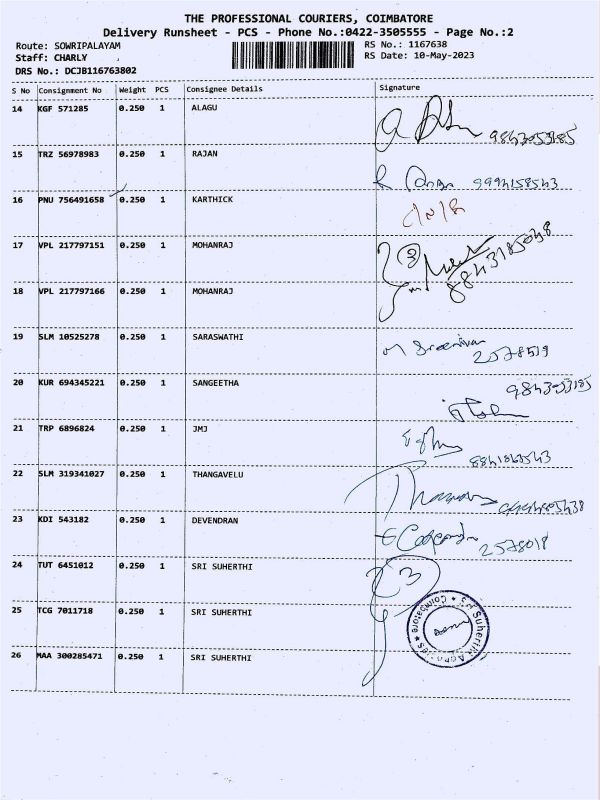 THE PROFESSIONAL COURIERS, COIMBATORE
Delivery Runsheet - PCS - Phone No.:0422-3505555 - Page No.:2
Route: SOWRIPALAYAM
Staff: CHARLY
DRS No.: DCJB116763802
RS No.: 1167638
RS Date: 10-May-2023
S No Consignment No Weight PCS Consignee Details Signature
14 KGF 571285 0.250 1 ALAGU
15 TRZ 56978983 0.250 1 RAJAN
16 PNU 756491658 0.250 1 KARTHICK
17 VPL 217797151 0.250 1 MOHANRAJ
18 VPL 217797166 0.250 1 MOHANRAJ
19 SLM 10525278 0.250 1 SARASWATHI
2578519
20 KUR 694345221 0.250 1 SANGEETHA
21 TRP 6896824 0.250 1 JMJ
22 SLM 319341027 0.250 1 THANGAVELU
23 KDI 543182 0.250 1 DEVENDRAN
2578018
24 TUT 6451012 0.250 1 SRI SUHERTHI
3
25 TCG 7011718 0.250 1 SRI SUHERTHI
26 MAA 300285471 0.250 1 SRI SUHERTHI
Coimbatore